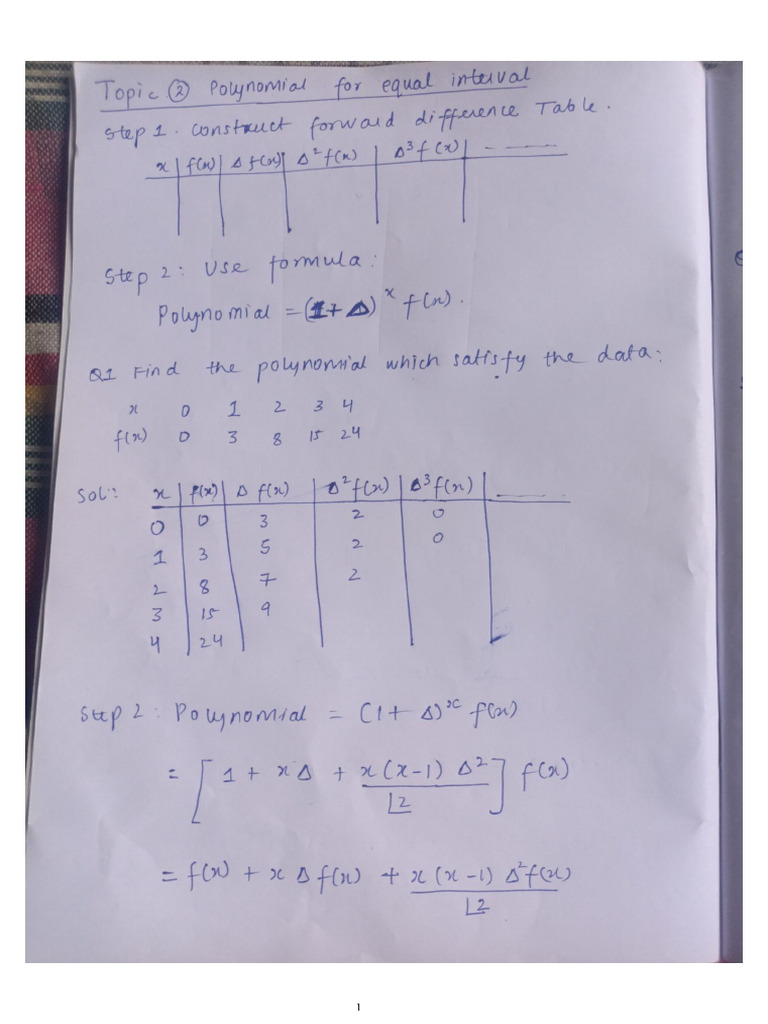 Topic ② Polynomial for equal interval
Step 1. Construct forward difference Table.
x f(x) Δ f(x) Δ² f(x) Δ³ f(x) - - - -
Step 2: Use formula:
Polynomial = (1+ Δ)ˣ f(x).
Q1 Find the polynomial which satisfy the data:
x 0 1 2 3 4
f(x) 0 3 8 15 24
Sol:- x f(x) Δ f(x) Δ² f(x) Δ³ f(x) - - - -
0 0 3 2 0
1 3 5 2 0
2 8 7 2
3 15 9
4 24
Step 2: Polynomial = (1+ Δ)ˣ f(x)
= [1 + xΔ + x(x-1) Δ² / ⌊2] f(x)
= f(x) + x Δ f(x) + x(x-1) Δ² f(x) / ⌊2
1